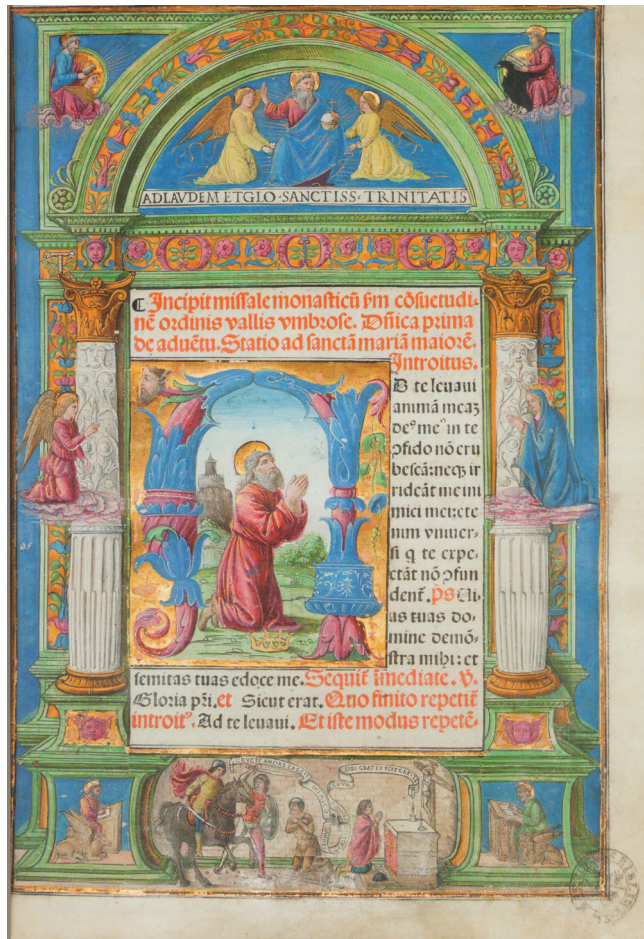 AD LAVDEM ET GLO · SANCTISS · TRINITATIS
Incipit missale monasticū ẜm cōsuetudi-
nē ordinis vallis vmbrose. Dn̄ica prima
de aduētu. Statio ad sanctā mariā maiorē.
Introitus.
D te leuaui
animā meaʒ
deꝰ meꝰ in te
ꝯfido nō eru
bescā: neqʒ ir
rideāt me ini
mici mei: ete
nim vniuer-
si q te expe-
ctāt nō ꝯfun
dent̄. p̄s Ui-
as tuas do-
mine demō-
stra mihi: et
semitas tuas edoce me. Sequit̄ īmediate. v.
Gloria pr̄i. et Sicut erat. Quo finito repetit̄
introitꝰ. Ad te leuaui. Et iste modus repetē-